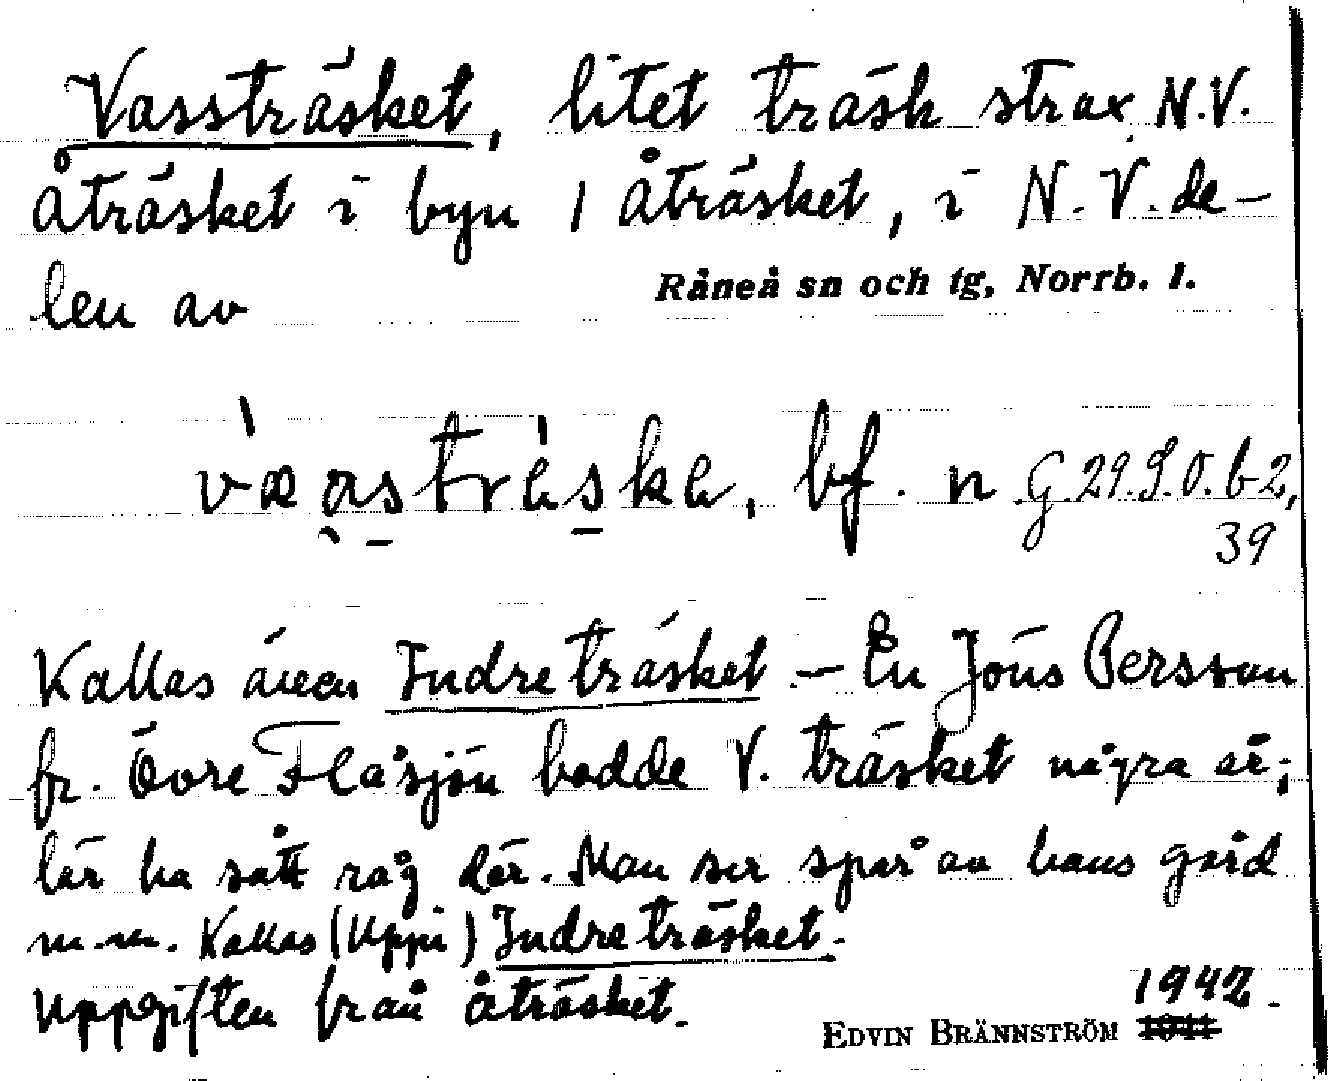 Vassträsket, litet träsk strax N.V.
Åträsket i byn 1 Åträsket, i N.V. de-
len av
Råneå sn och tg, Norrb. l.
bf. n G 29.9.0. b2,
39
Kallas även Indreträsket. – En Jöns Persson
fr. Övre Flåsjön bodde V. träsket några år;
lär ha sått råg där. Man ser spår av hans gård
m.m. Kallas (Uppi) Indreträsket.
Uppgiften från Åträsket.
1942.
EDVIN BRÄNNSTRÖM 1941